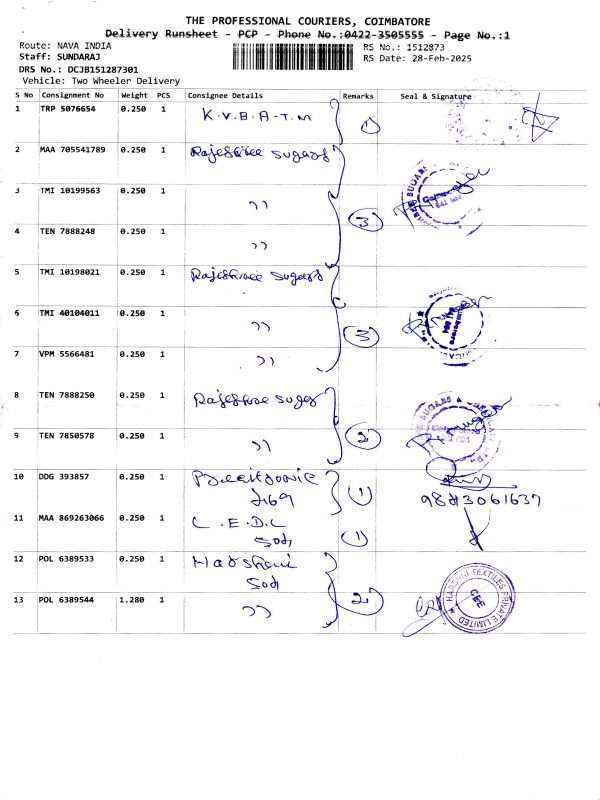 THE PROFESSIONAL COURIERS, COIMBATORE
Delivery Runsheet - PCP - Phone No.:0422-3505555 - Page No.:1
Route: NAVA INDIA
RS No.: 1512873
Staff: SUNDARAJ
RS Date: 28-Feb-2025
DRS No.: DCJB151287301
Vehicle: Two Wheeler Delivery
S No Consignment No Weight PCS Consignee Details Remarks Seal & Signature
1 TRP 5076654 0.250 1 K.V.B.A-T.M 1
2 MAA 705541789 0.250 1 Rajeshree sugars
3 TMI 10199563 0.250 1 " 3
4 TEN 7888248 0.250 1 "
5 TMI 10198021 0.250 1 Rajeshree sugars
6 TMI 40104011 0.250 1 " 3
7 VPM 5566481 0.250 1 "
8 TEN 7888250 0.250 1 Rajeshree sugars
9 TEN 7850578 0.250 1 " 2
10 DDG 393857 0.250 1 1
9843061637
11 MAA 869263066 0.250 1 C.E.D.C 1
12 POL 6389533 0.250 1
13 POL 6389544 1.280 1 " 2
HARSHNI TEXTILES PRIVATE LIMITED
CBE